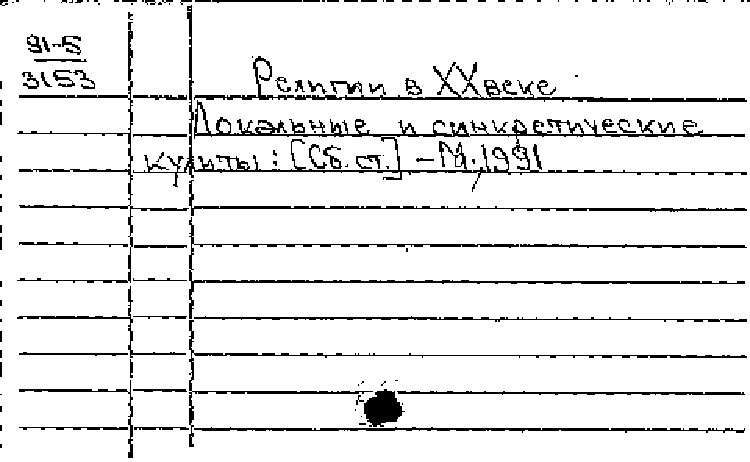 91-5
3153
Религии в XX веке
Локальные и синкретические
культы: [Сб. ст.] – М., 1991